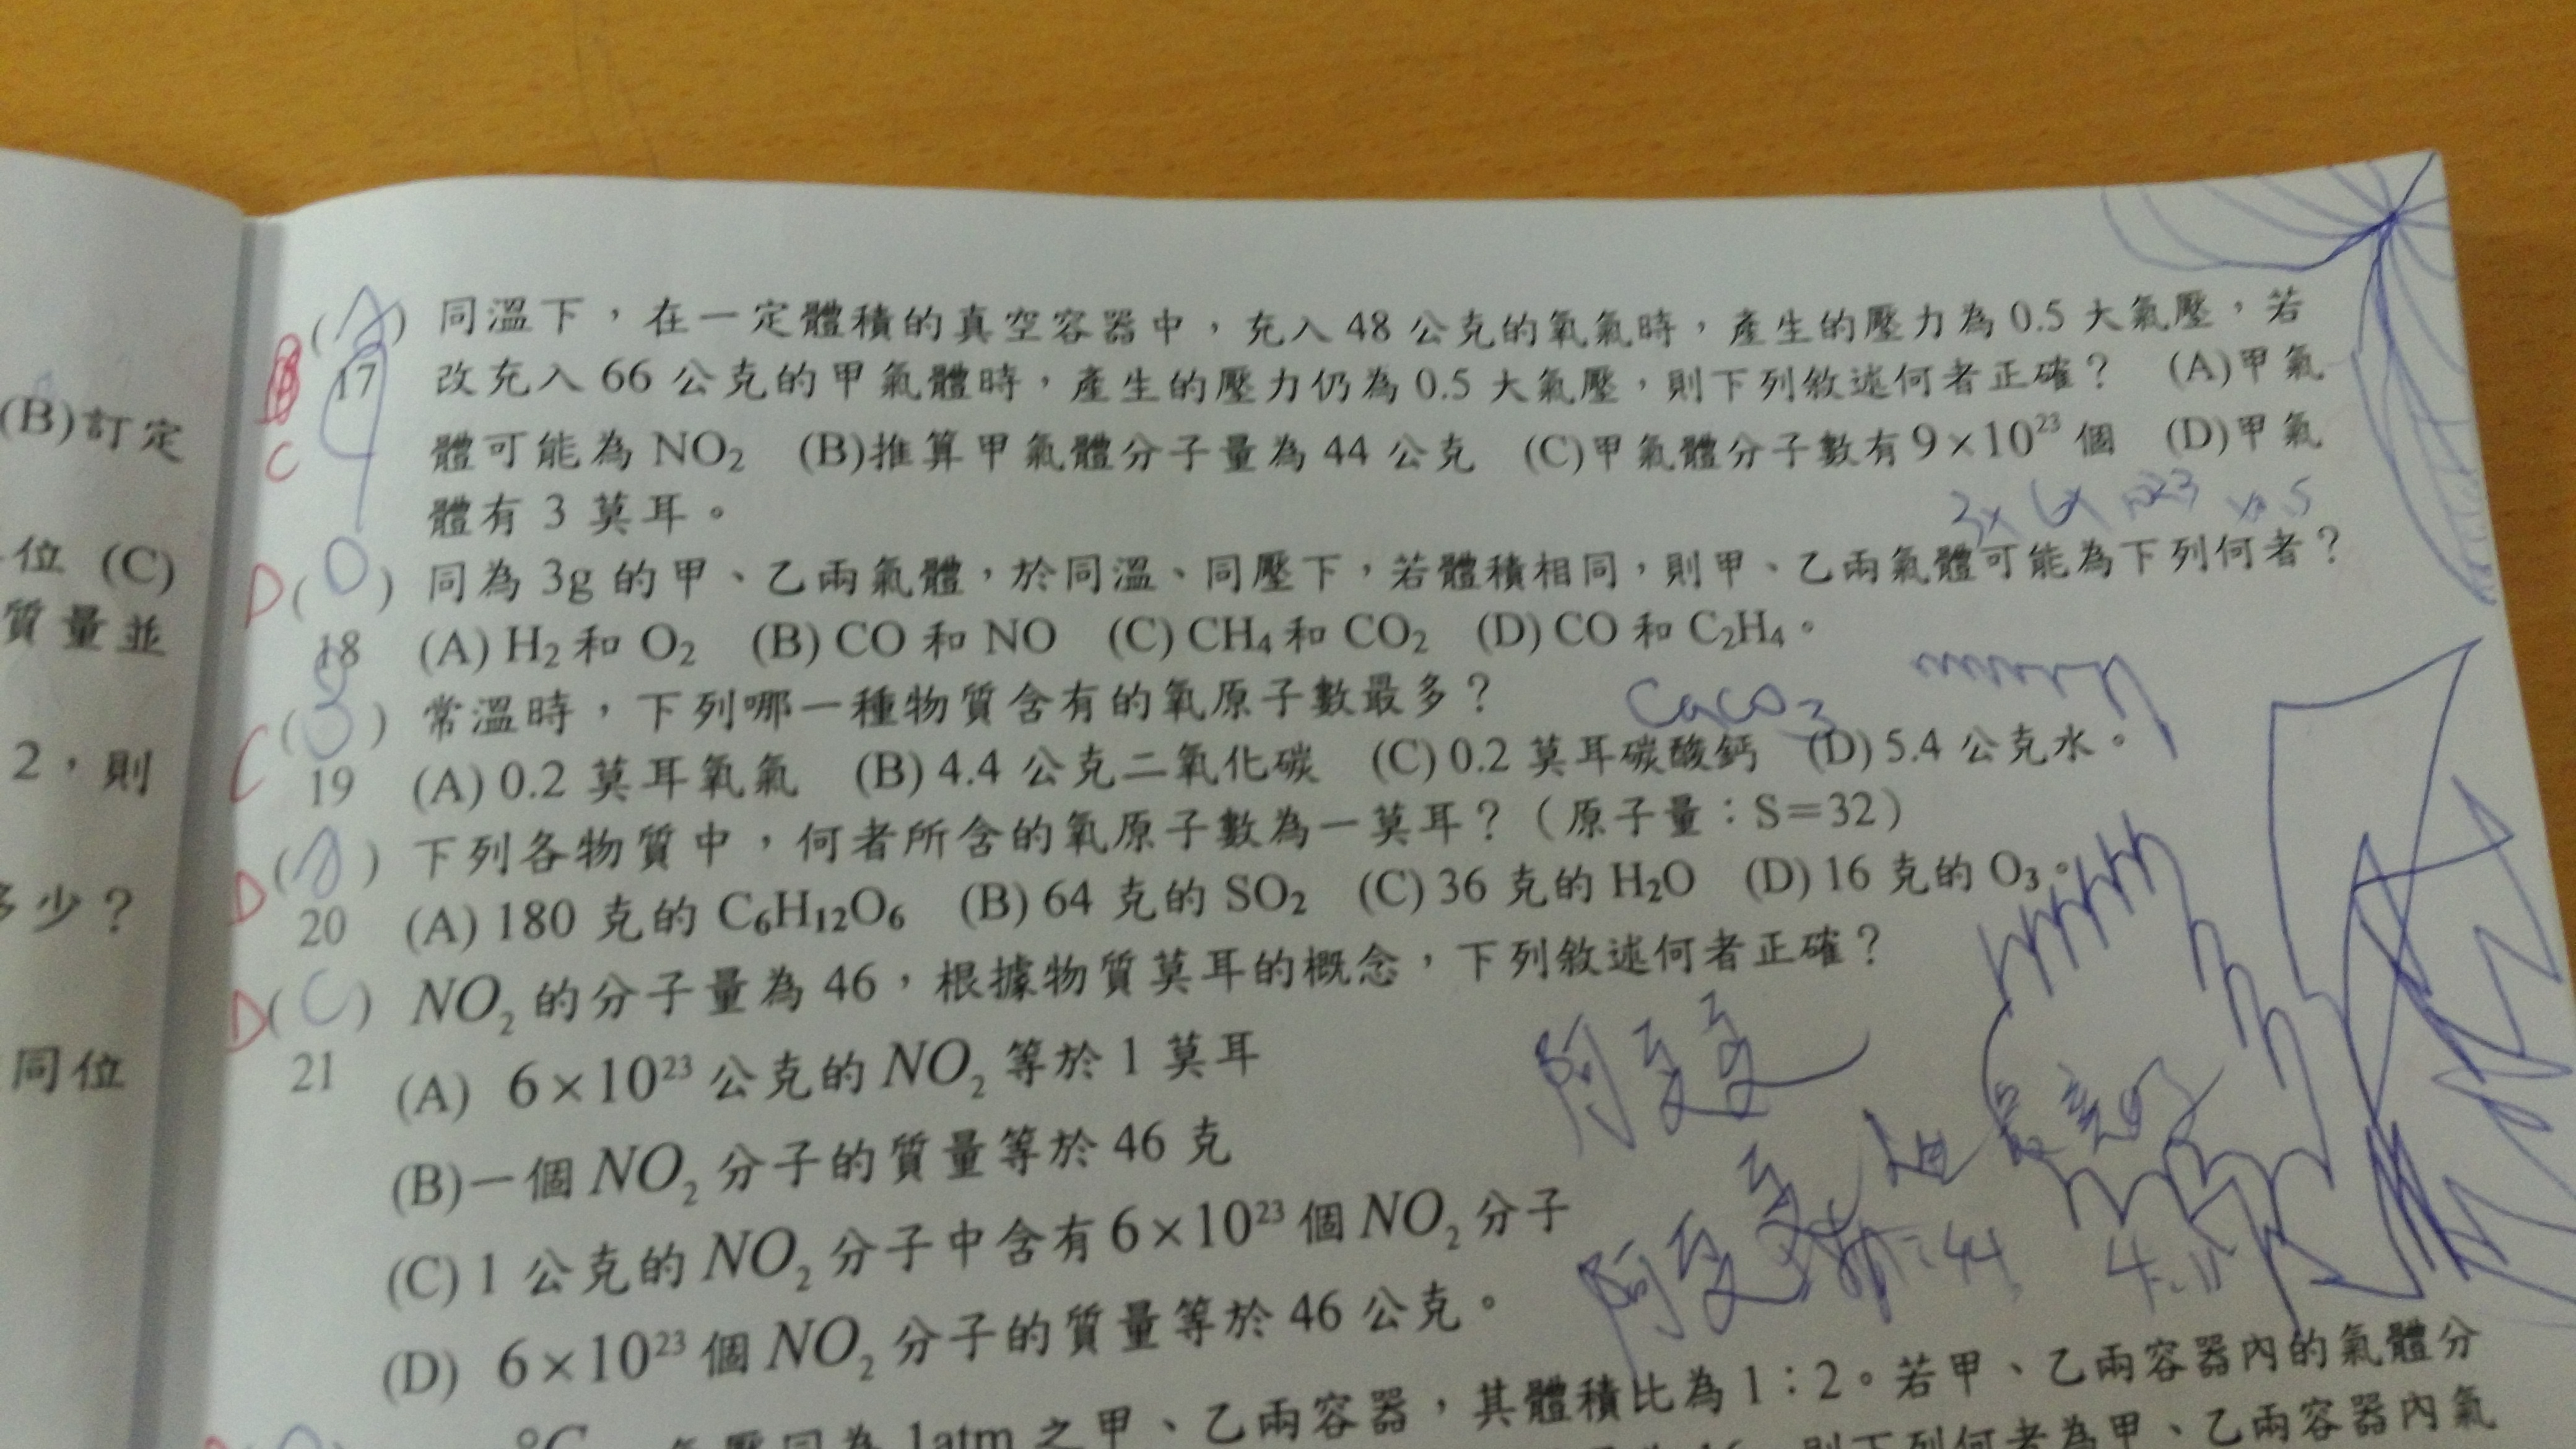 (B)訂定
位 (C)
質量並
2，則
少？
同位
B
C
( A ) 同溫下，在一定體積的真空容器中，充入 48 公克的氧氣時，產生的壓力為 0.5 大氣壓，若
17 改充入 66 公克的甲氣體時，產生的壓力仍為 0.5 大氣壓，則下列敘述何者正確？ (A)甲氣
體可能為 NO₂ (B)推算甲氣體分子量為 44 公克 (C)甲氣體分子數有 9×10²³ 個 (D)甲氣
體有 3 莫耳。
D ( D ) 同為 3g 的甲、乙兩氣體，於同溫、同壓下，若體積相同，則甲、乙兩氣體可能為下列何者？
18 (A) H₂ 和 O₂ (B) CO 和 NO (C) CH₄ 和 CO₂ (D) CO 和 C₂H₄。
CaCO₃
C ( ) 常溫時，下列哪一種物質含有的氧原子數最多？
19 (A) 0.2 莫耳氧氣 (B) 4.4 公克二氧化碳 (C) 0.2 莫耳碳酸鈣 (D) 5.4 公克水。
D ( ) 下列各物質中，何者所含的氧原子數為一莫耳？（原子量：S＝32）
20 (A) 180 克的 C₆H₁₂O₆ (B) 64 克的 SO₂ (C) 36 克的 H₂O (D) 16 克的 O₃。
D ( C ) NO₂ 的分子量為 46，根據物質莫耳的概念，下列敘述何者正確？
21 (A) 6×10²³ 公克的 NO₂ 等於 1 莫耳
(B)一個 NO₂ 分子的質量等於 46 克
(C) 1 公克的 NO₂ 分子中含有 6×10²³ 個 NO₂ 分子
(D) 6×10²³ 個 NO₂ 分子的質量等於 46 公克。
℃ 氣壓同為 1atm 之甲、乙兩容器，其體積比為 1：2。若甲、乙兩容器內的氣體分
則下列何者為甲、乙兩容器內氣